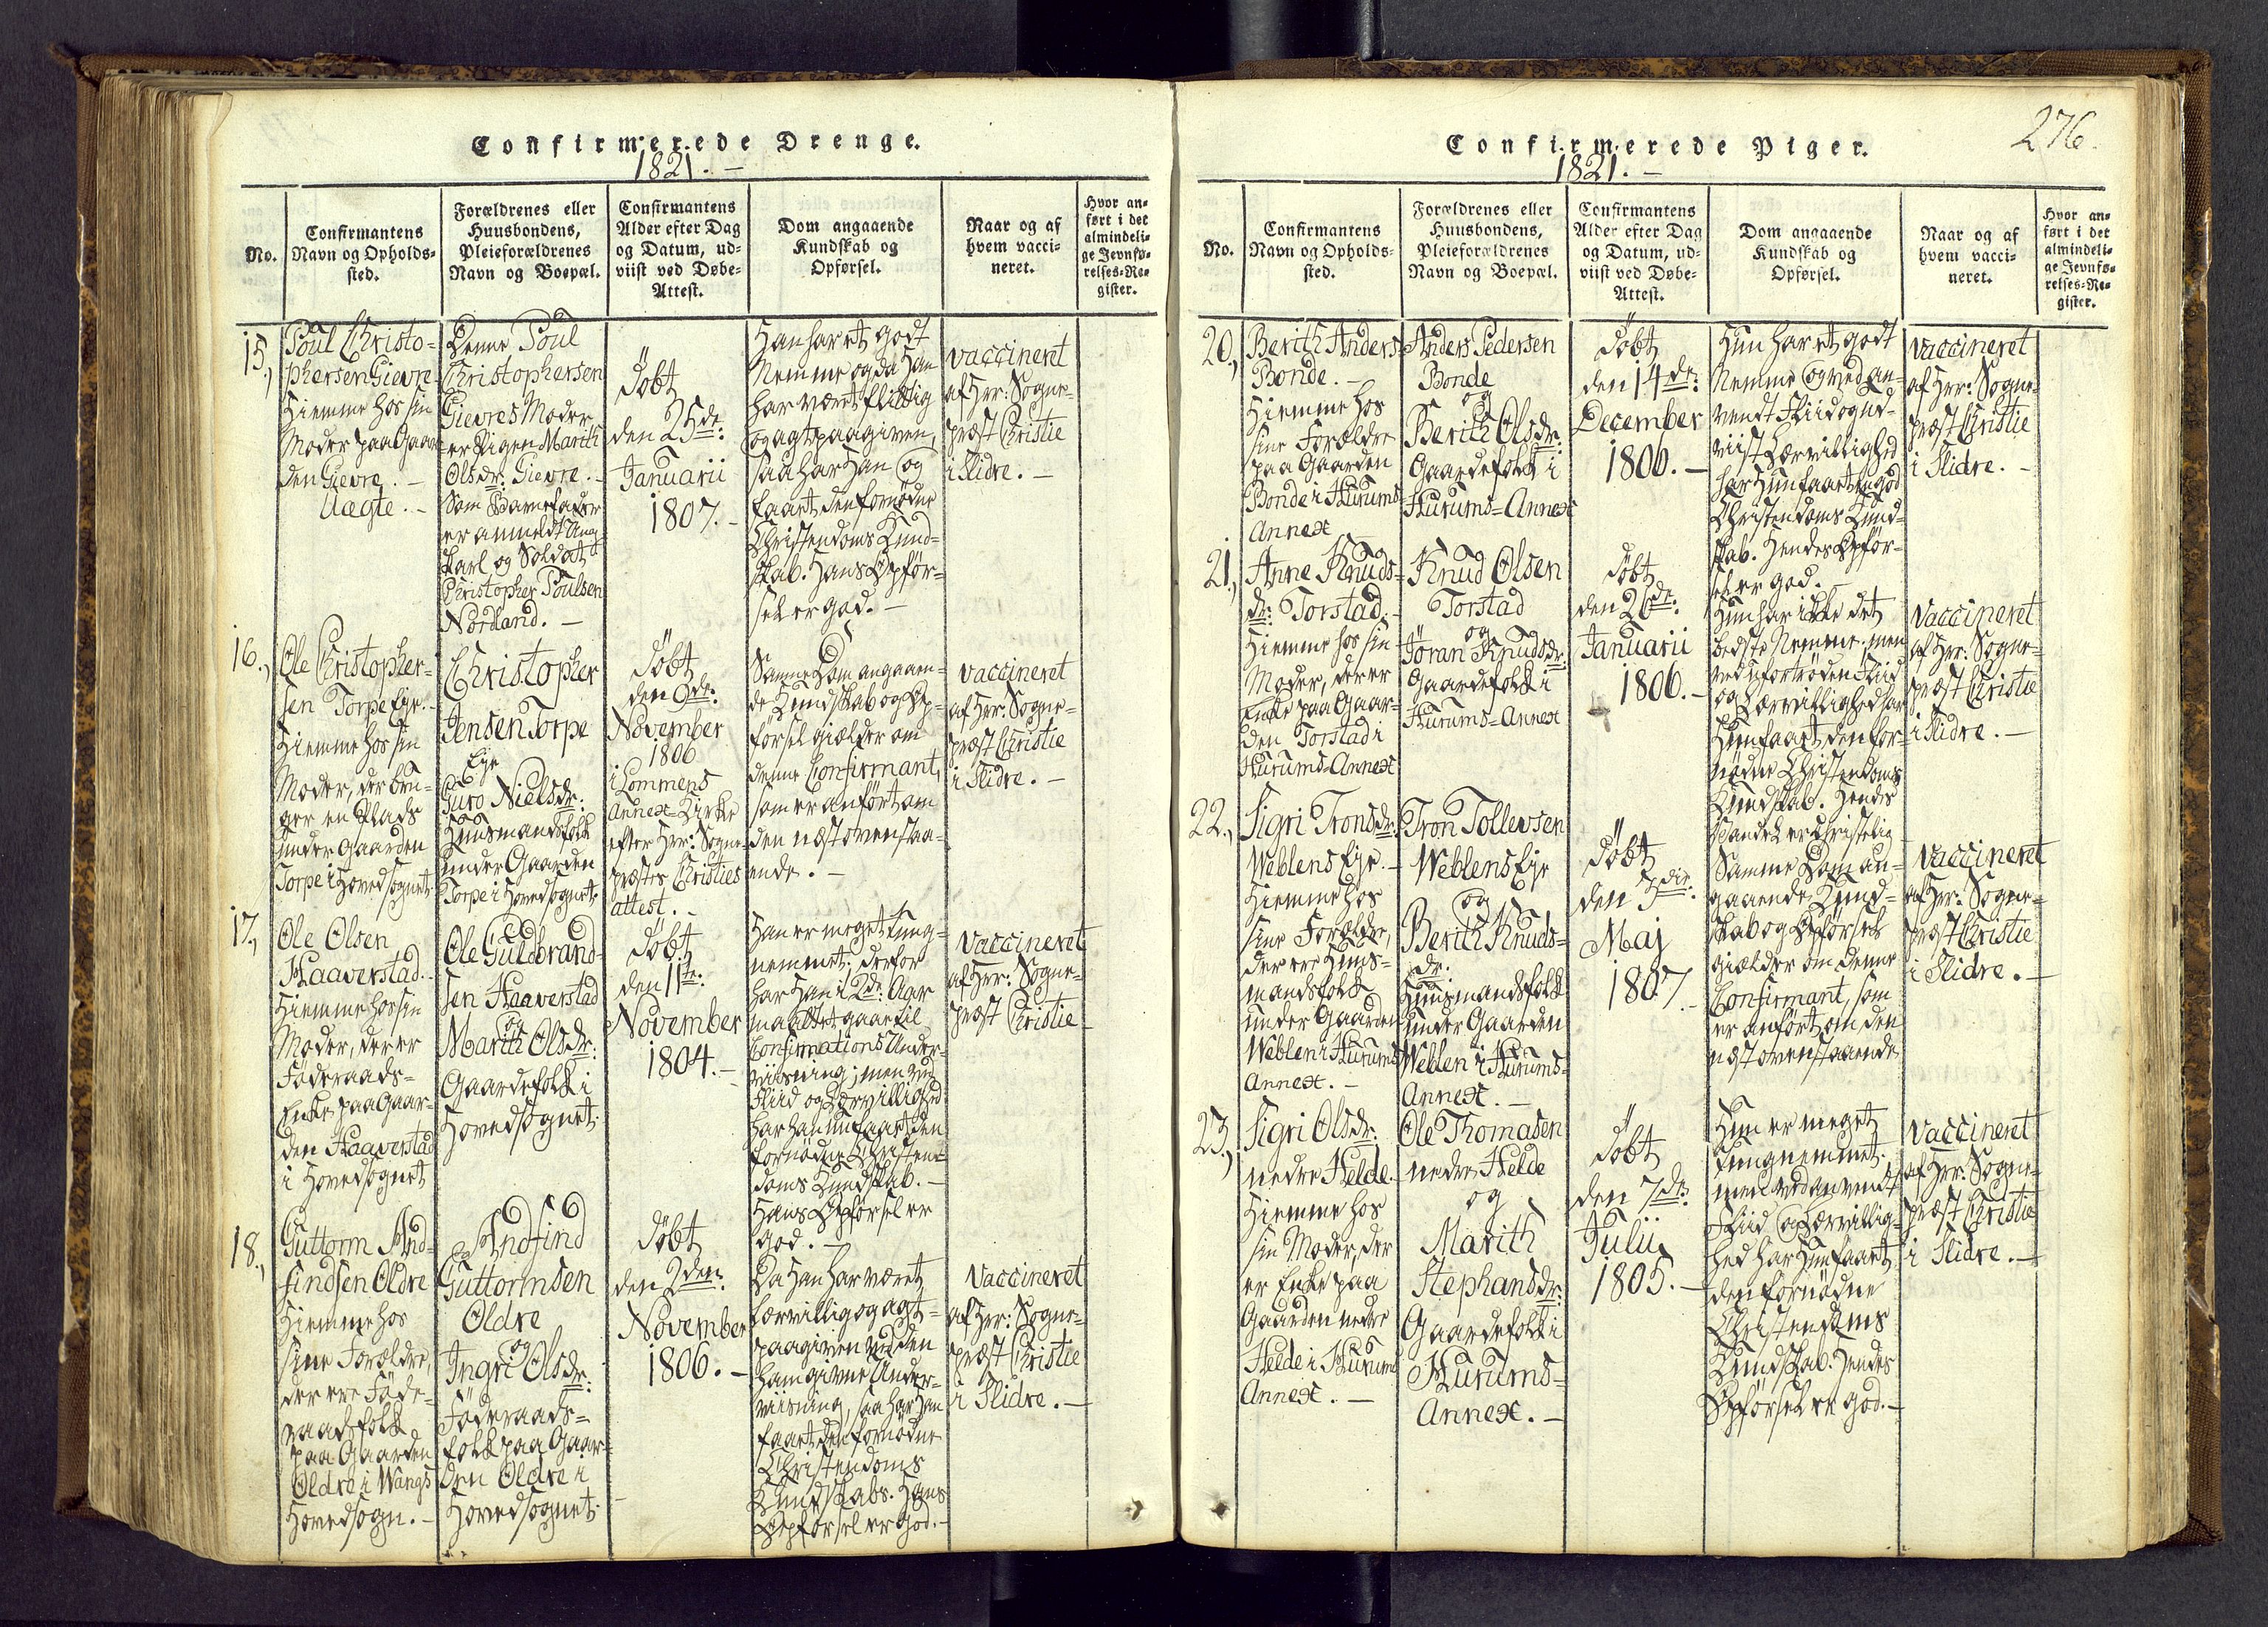 Confirmerede Drenge.
1821. -
No.
Confirmantens
Navn og Opholds-
sted.
Forældrenes eller
Huusbondens,
Pleieforældrenes
Navn og Boepæl.
Confirmantens
Alder efter Dag
og Datum, ud-
viist ved Døbe-
Attest.
Dom angaaende
Kundskab og
Opførsel.
Naar og af
hvem vacci-
neret.
Hvor an-
ført i det
almindeli-
ge Jevnfø-
relses-Re-
gister.
15.,
Poul Christo-
phersen Gievre
Hiemme hos sin
Moder paa Gaar-
den Gievre. -
Uægte. -
Denne Poul
Christophersen
Gievres Moder
er Pigen Marith
Olsdr: Gievre. -
Som Barnefader
er anmeldt Ung-
karl og Soldat
Christopher Poulsen
Nordland. -
Döbt
den 25de:
Januarii
1807. -
Han har et godt
Nemme og da Han
har været flittig
og agtpaagiven,
saa har Han og
faaet den fornødne
Christendoms Kund-
skab. Hans Opför-
sel er god. -
vaccineret
af Hrr: Sogne-
præst Christie
i Slidre. -
16.,
Ole Christopher-
sen Torpe Eje. -
Hiemme hos sin
Moder, der bru-
ger en Plads
under Gaarden
Torpe i Hovedsognet.
Christopher
Jensen Torpe
Eje
og
Guro Nielsdr:
Huusmandsfolk
under Gaarden
Torpe i Hovedsognet.
Döbt
den 9de:
November
1806
i Lommens
Annex-Kirke
efter Hrr: Sogne-
præstes Christies
attest. -
Samme Dom angaaen-
de Kundskab og Op-
førsel gielder om
denne Confirmant,
som er anført om
den næst ovenstaa-
ende. -
vaccineret
af Hrr: Sogne-
præst Christie
i Slidre. -
17.,
Ole Olsen
Haaverstad.
Hiemme hos sin
Moder, der er
Föderaads-
Enke paa Gaar-
den Haaverstad
i Hovedsognet
Ole Guldbrand-
sen Haaverstad
og
Marith Olsdr:
Gaardefolk i
Hovedsognet.
Döbt
den 11te:
November
1804. -
Han er meget tung-
nemmet; derfor
har Han i 2de: Aar
maattet gaae til
Confirmations Under-
viisning; men ved
Fliid og Lærvillighed
har han nu faaet den
fornødne Christen-
doms Kundskab. -
Hans Opførsel er
god. -
Vaccineret
af Hrr: Sogne-
præst Christie
18.,
Guttorm And-
findsen Oldre
Hiemme hos
sine Forældre,
der ere Föde-
raadsfolk
paa Gaarden
Oldre i Wangs
Hovedsogn. -
Andfind
Guttormsen
Oldre
og
Ingri Olsdr:
Föderaads-
folk paa Gaar-
den Oldre i
Hovedsognet.
Döbt
den 2den:
November
1806. -
Da Han har været
Lærvillig og agt-
paagiven ved den
ham givne Under-
viisning, saa har Han
faaet den fornødne
Christendoms
Kundskab. Hans
Opførsel er god. -
Vaccineret
af Hrr: Sogne-
præst Christie
i Slidre. -
276.
Confirmerede Piger.
1821. -
No.
Confirmantens
Navn og Opholds-
sted.
Forældrenes eller
Huusbondens,
Pleieforældrenes
Navn og Boepæl.
Confirmantens
Alder efter Dag
og Datum, ud-
viist ved Døbe-
Attest.
Dom angaaende
Kundskab og
Opførsel.
Naar og af
hvem vacci-
neret.
Hvor an-
ført i det
almindeli-
ge Jevnfø-
relses-Re-
gister.
20.,
Berith Anders-
Bonde. -
Hiemme hos
sine Forældre
paa Gaarden
Bonde i Hurums
Annex
Anders Pedersen
Bonde
og
Berith Olsdr:
Gaardefolk i
Hurums-Annex
Döbt
den 14de:
December
1806. -
Hun har et godt
Nemme og ved an-
vendt Fliid og ud-
viist Lærvillighed
har Hun faaet en god
Christendoms Kund-
skab. Hendes Opför-
sel er god. -
Vaccineret
af Hrr: Sogne-
præst Christie
i Slidre. -
21.,
Anne Knuds-
dr: Torstad. -
Hiemme hos sin
Moder, der er
Enke paa Gaar-
den Torstad i
Hurums-Annex
Knud Olsen
Torstad
og
Jöran Knudsdr:
Gaardefolk i
Hurums-Annex
Döbt
den 26de:
Januarii
1806. -
Hun har ikke det
bedste Nemme; men
ved ufortröden Fliid
og Lærvillighed har
Hun faaet den for-
nødne Christendoms
Kundskab. Hendes
Vandel er Christelig
Vaccineret
af Hrr: Sogne-
præst Christie
i Slidre. -
22.,
Sigri Tronsdr:
Weblens Eje. -
Hiemme hos
sine Forældre,
der ere Huus-
mandsfolk
under Gaarden
Weblen i Hurums
Annex. -
Tron Tollevsen
Weblens Eje
og
Berith Knuds-
dr:
Huusmandsfolk
under Gaarden
Weblen i Hurums-
Annex. -
Döbt
den 3die:
Maj
1807
Samme Dom an-
gaaende Kund-
skab og Opförsel
gielder om denne
Confirmant, som
er anført om den
næst ovenstaaende
Vaccineret
af Hrr: Sogne-
præst Christie
i Slidre. -
23.,
Sigri Olsdr:
nedre Helde.
Hiemme hos
sin Moder, der
er Enke paa
Gaarden nedre
Helde i Hurums
Annex. -
Ole Thomasen
nedre Helde
og
Marith
Stephansdr:
Gaardefolk i
Hurums-
Annex. -
Döbt
den 7de:
Julii
1805. -
Hun er meget
tungnemmet.
men ved anvendt
Fliid og Lærvillig-
hed har Hun faaet
den fornødne
Christendoms
Kundskab. Hendes
Opförsel er god. -
Vaccineret
af Hrr: Sogne-
præst Christie
i Slidre. -